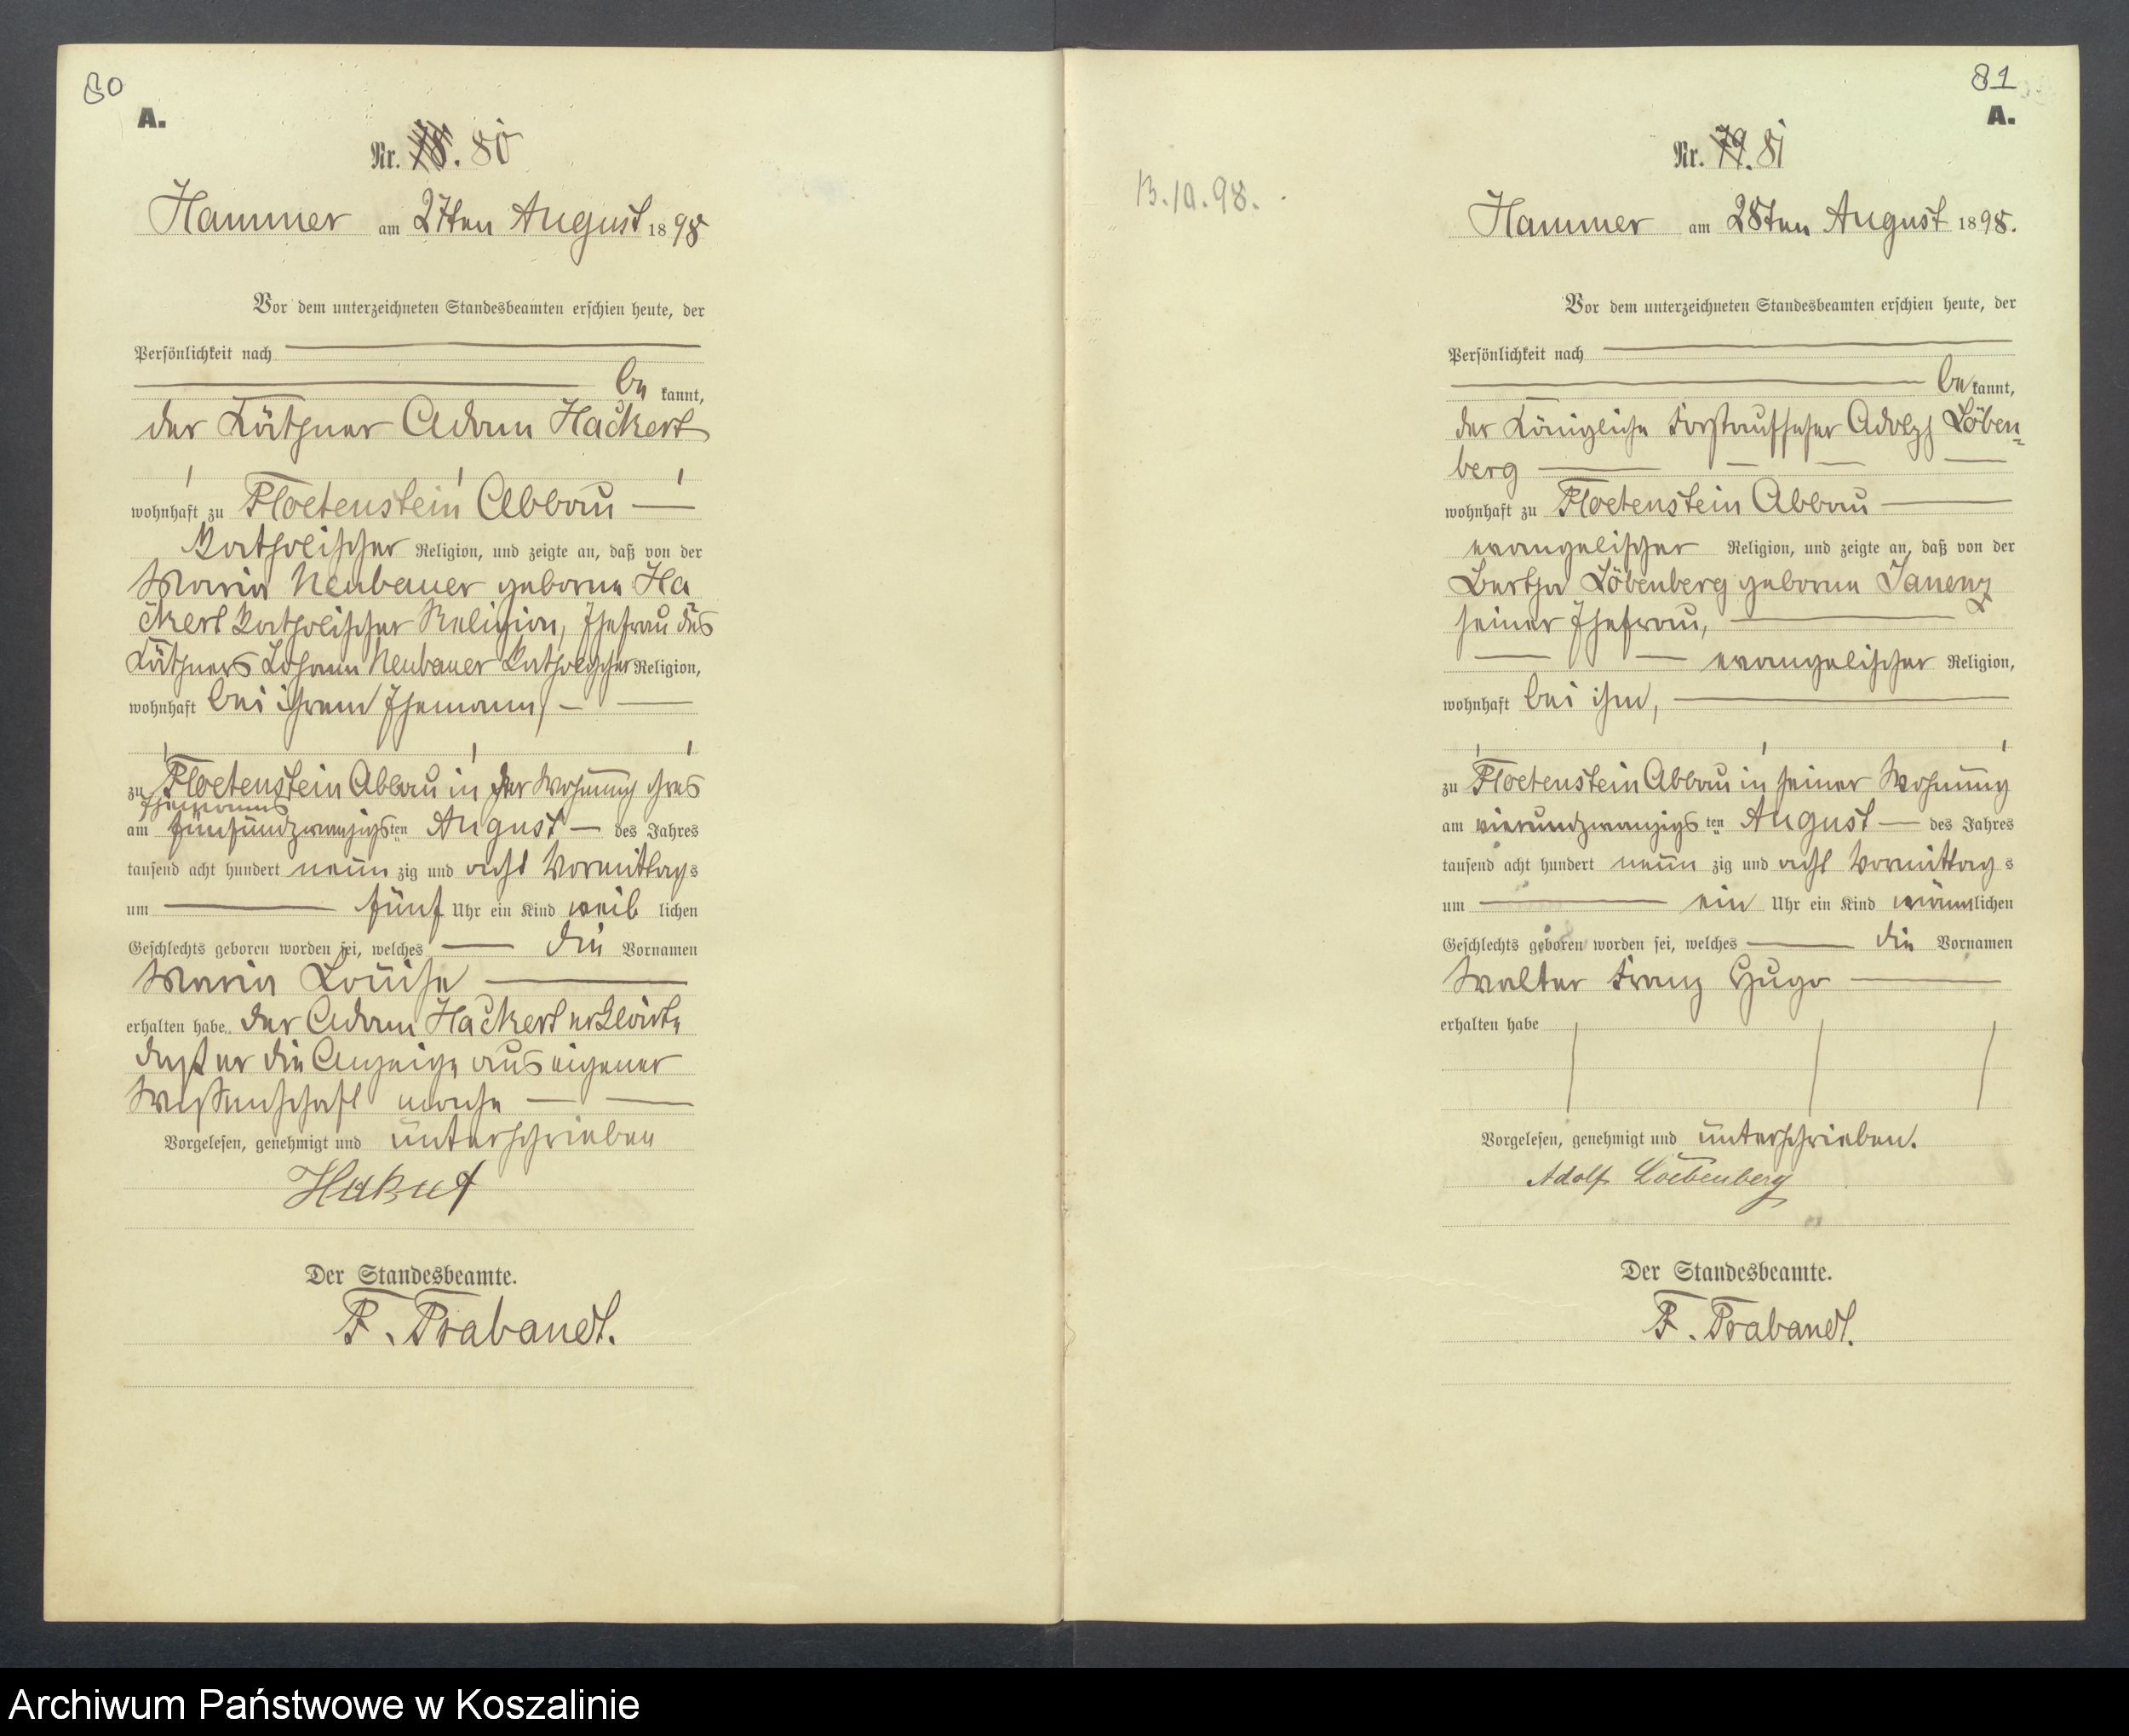 80
A.
Nr. 78. 80
Hammer am 27ten August 1898
Vor dem unterzeichneten Standesbeamten erschien heute, der
Persönlichkeit nach
be kannt,
der Käthner Adam Hackert
wohnhaft zu Floetenstein Abbau
katholischer Religion, und zeigte an, daß von der
Maria Neubauer geborne Ha
ckert katholischer Religion, Ehefrau des
Käthners Johann Neubauer katholischer Religion,
wohnhaft bei ihrem Ehemann,
zu Floetenstein Abbau in der Wohnung ihres
Ehemanns
am fünfundzwanzigsten August des Jahres
tausend acht hundert neun zig und acht Vormittags
um fünf Uhr ein Kind weib lichen
Geschlechts geboren worden sei, welches die Vornamen
Maria Louise
erhalten habe. der Adam Hackert erklärte
daß er die Anzeige aus eigener
Wissenschaft mache
Vorgelesen, genehmigt und unterschrieben
Der Standesbeamte.
F. Trabandt.
81
A.
13.10.98.
Nr. 79. 81
Hammer am 28ten August 1898.
Vor dem unterzeichneten Standesbeamten erschien heute, der
Persönlichkeit nach
be kannt,
der Königliche Forstaufseher Adolph Löben-
berg
wohnhaft zu Floetenstein Abbau
evangelischer Religion, und zeigte an, daß von der
Bertha Löbenberg geborne Janenz
seiner Ehefrau,
evangelischer Religion,
wohnhaft bei ihm,
zu Floetenstein Abbau in seiner Wohnung
am vierundzwanzigsten August des Jahres
tausend acht hundert neun zig und acht Vormittag s
um ein Uhr ein Kind männlichen
Geschlechts geboren worden sei, welches die Vornamen
Walter Franz Hugo
erhalten habe
Vorgelesen, genehmigt und unterschrieben.
Adolf Loebenberg
Der Standesbeamte.
F. Trabandt.
Archiwum Państwowe w Koszalinie